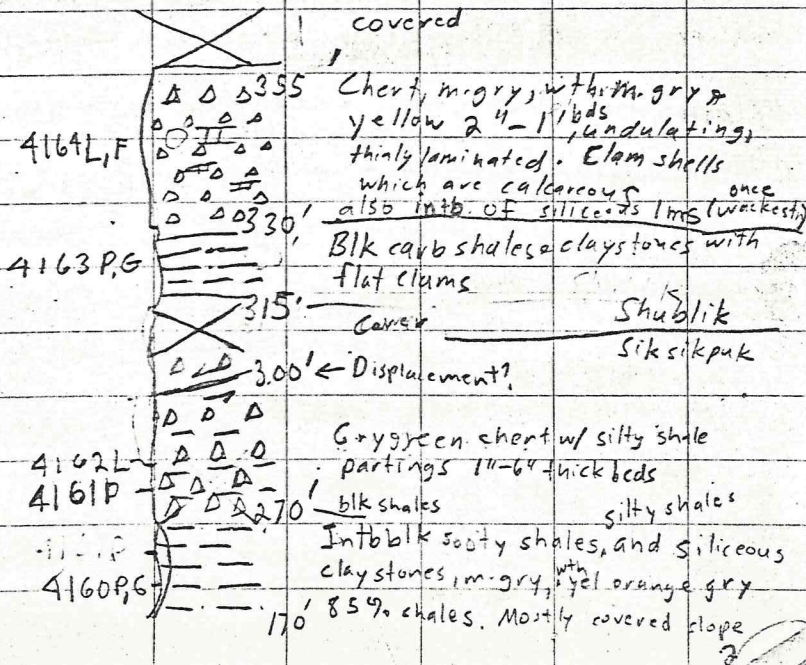 covered
355 Chert, m.gry, wth.m.gry &
yellow 2"-1' bds, undulating,
4164L,F
thinly laminated. Clam shells
which are calcareous
also intb. of siliceous lms (once wackest)
330'
Blk carb shales & claystones with
4163P,G
flat clams
315'
Cover
Shublik
Siksikpuk
300' ← Displacement?
Grygreen chert w/ silty shale
4162L
partings 1"-6" thick beds
4161P
270' blk shales silty shales
Intbblk sooty shales, and siliceous
claystones, m.gry, wth yel orange gry
4160P,G
170' 85% shales. Mostly covered slope